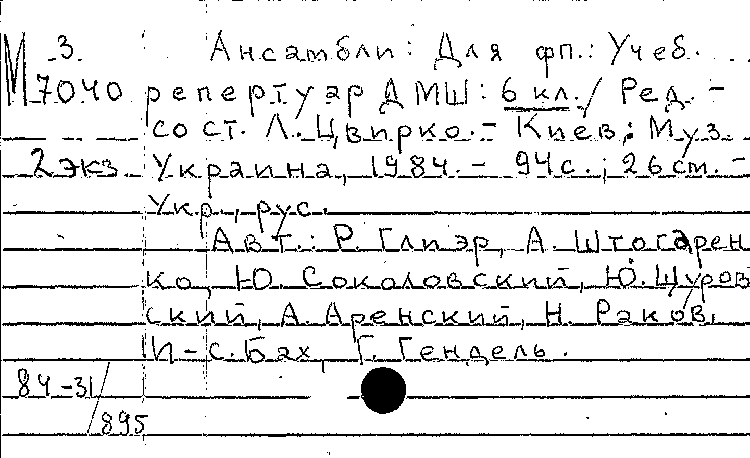 М 3. Ансамбли: Для фп.: Учеб.
7040 репертуар ДМШ: 6 кл./ Ред.-
сост. Л. Цвирко.- Киев: Муз.
2 экз. Украина, 1984.- 94 с.; 26 см.-
Укр., рус.
Авт.: Р. Глиэр, А. Штогарен
ко, Ю. Соколовский, Ю. Щуров
ский, А. Аренский, Н. Раков,
И-С. Бах, Г. Гендель.
84-31/
/895